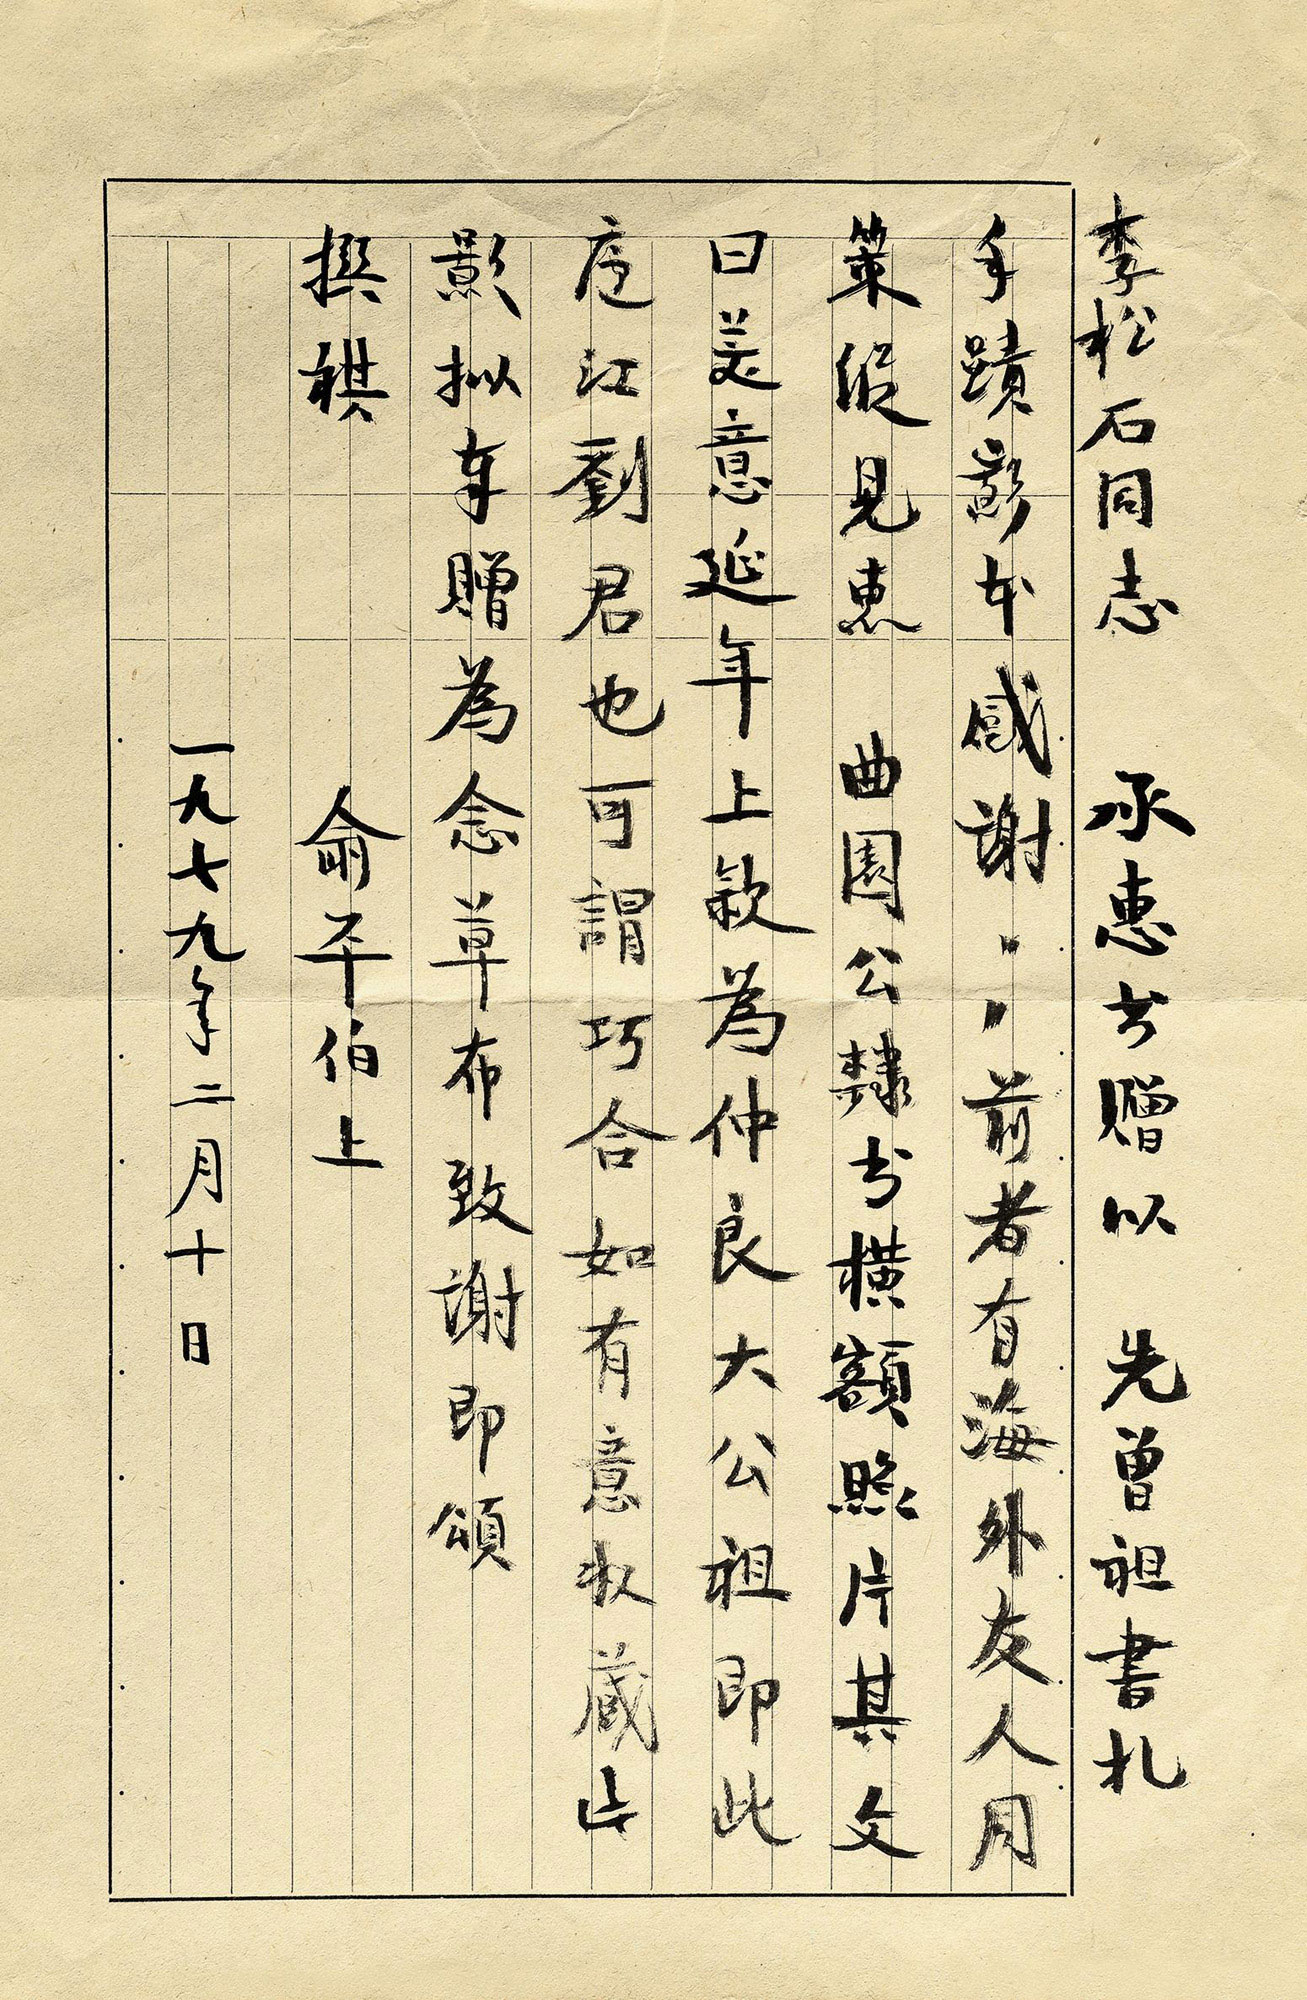 李松石同志　承惠书赠以　先曾祖書札
手蹟影本感谢〻〻前者有海外友人周
策縱見惠　曲園公隸书橫額照片其文
曰美意延年上款為仲良大公祖即此
庐江劉君也可謂巧合如有意收藏此
影拟奉贈為念草布致謝即頌
撰祺
俞平伯上
一九七九年二月十日